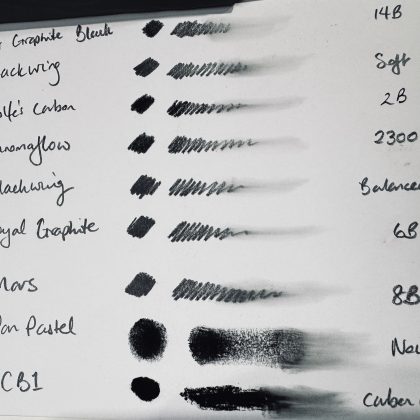 Graphite Black 14B
ackwing Soft
olfe's Carbon 2B
romaflow 2300
lackwing Balanced
oyal Graphite 6B
Mars 8B
Pan Pastel Neu
CB1 Carbon